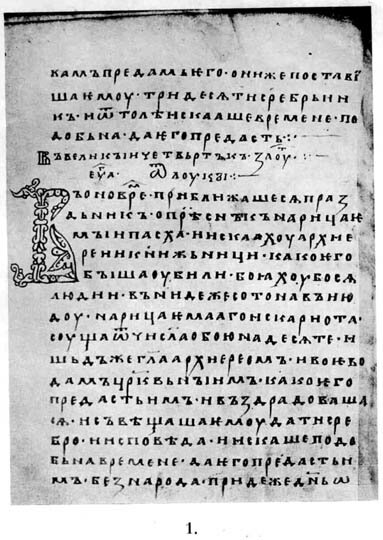 камъпредамьѥго·онижепоставі
шаѥмоу·тридесѧтисребрьни
къ·иѿтолѣискаашевремене·по
добьна·даѥгопредасть⁘
Въвеликъıичетвьртъкъ·
еу҃а· ѿлоу·
Въоновре҃·приближашесѧпраз
дьникъ·опрѣснъкънарицаѥ
мъıипасха·иискаахоуархие
реиикнижьници·какоѥго
бъıшаоубили·боꙗхоубосѧ
людии·вънидежесотонавъню
доу·нарицаѥмаагоискариота·
соущаѿчислаобоюнадесѧте·и
шьдъжегл҃аархиереомъ·ивоѥво
дамъцр҃квьнъıимъ·какоѥго
предастьимъ·ивъздрадоваша
сѧ·исъвѣщашаѥмоудатисре
бро·иисповѣда·иискашеподо
бьнавремене·даѥгопредастьи
мъ·безнарода·придеждн҃ьѡ
1.